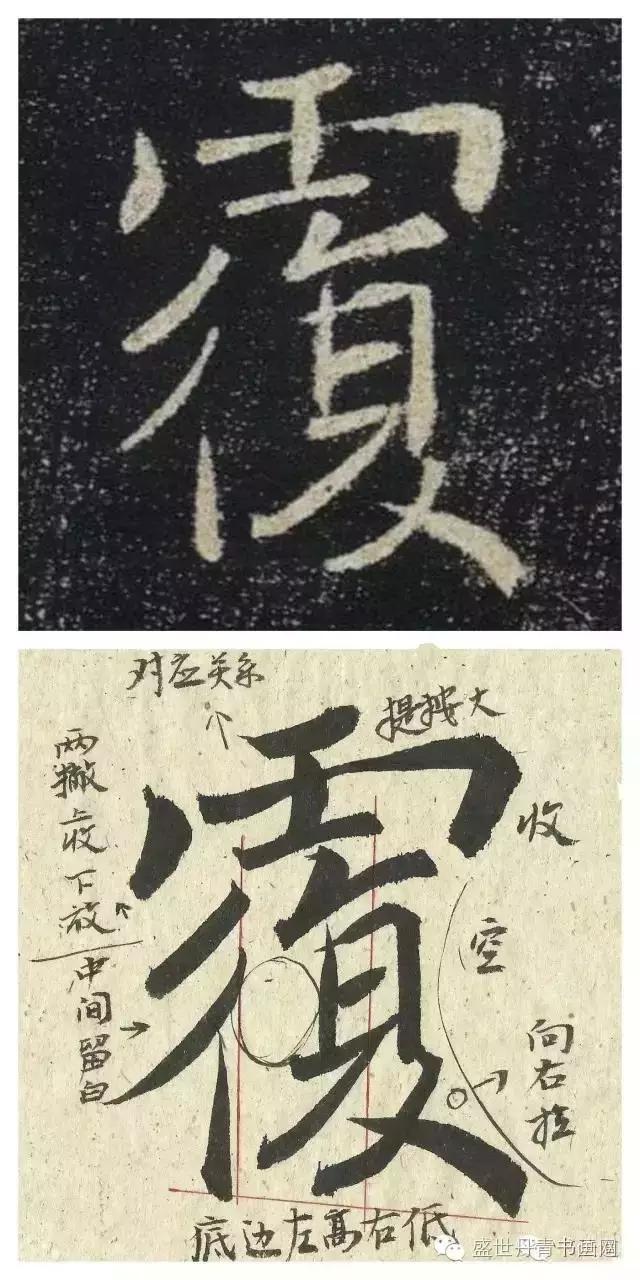 覆
对应关系
提按大
两撇上收下放
中间留白
覆
收
空
向右拉
底边左高右低
盛世丹青书画圈